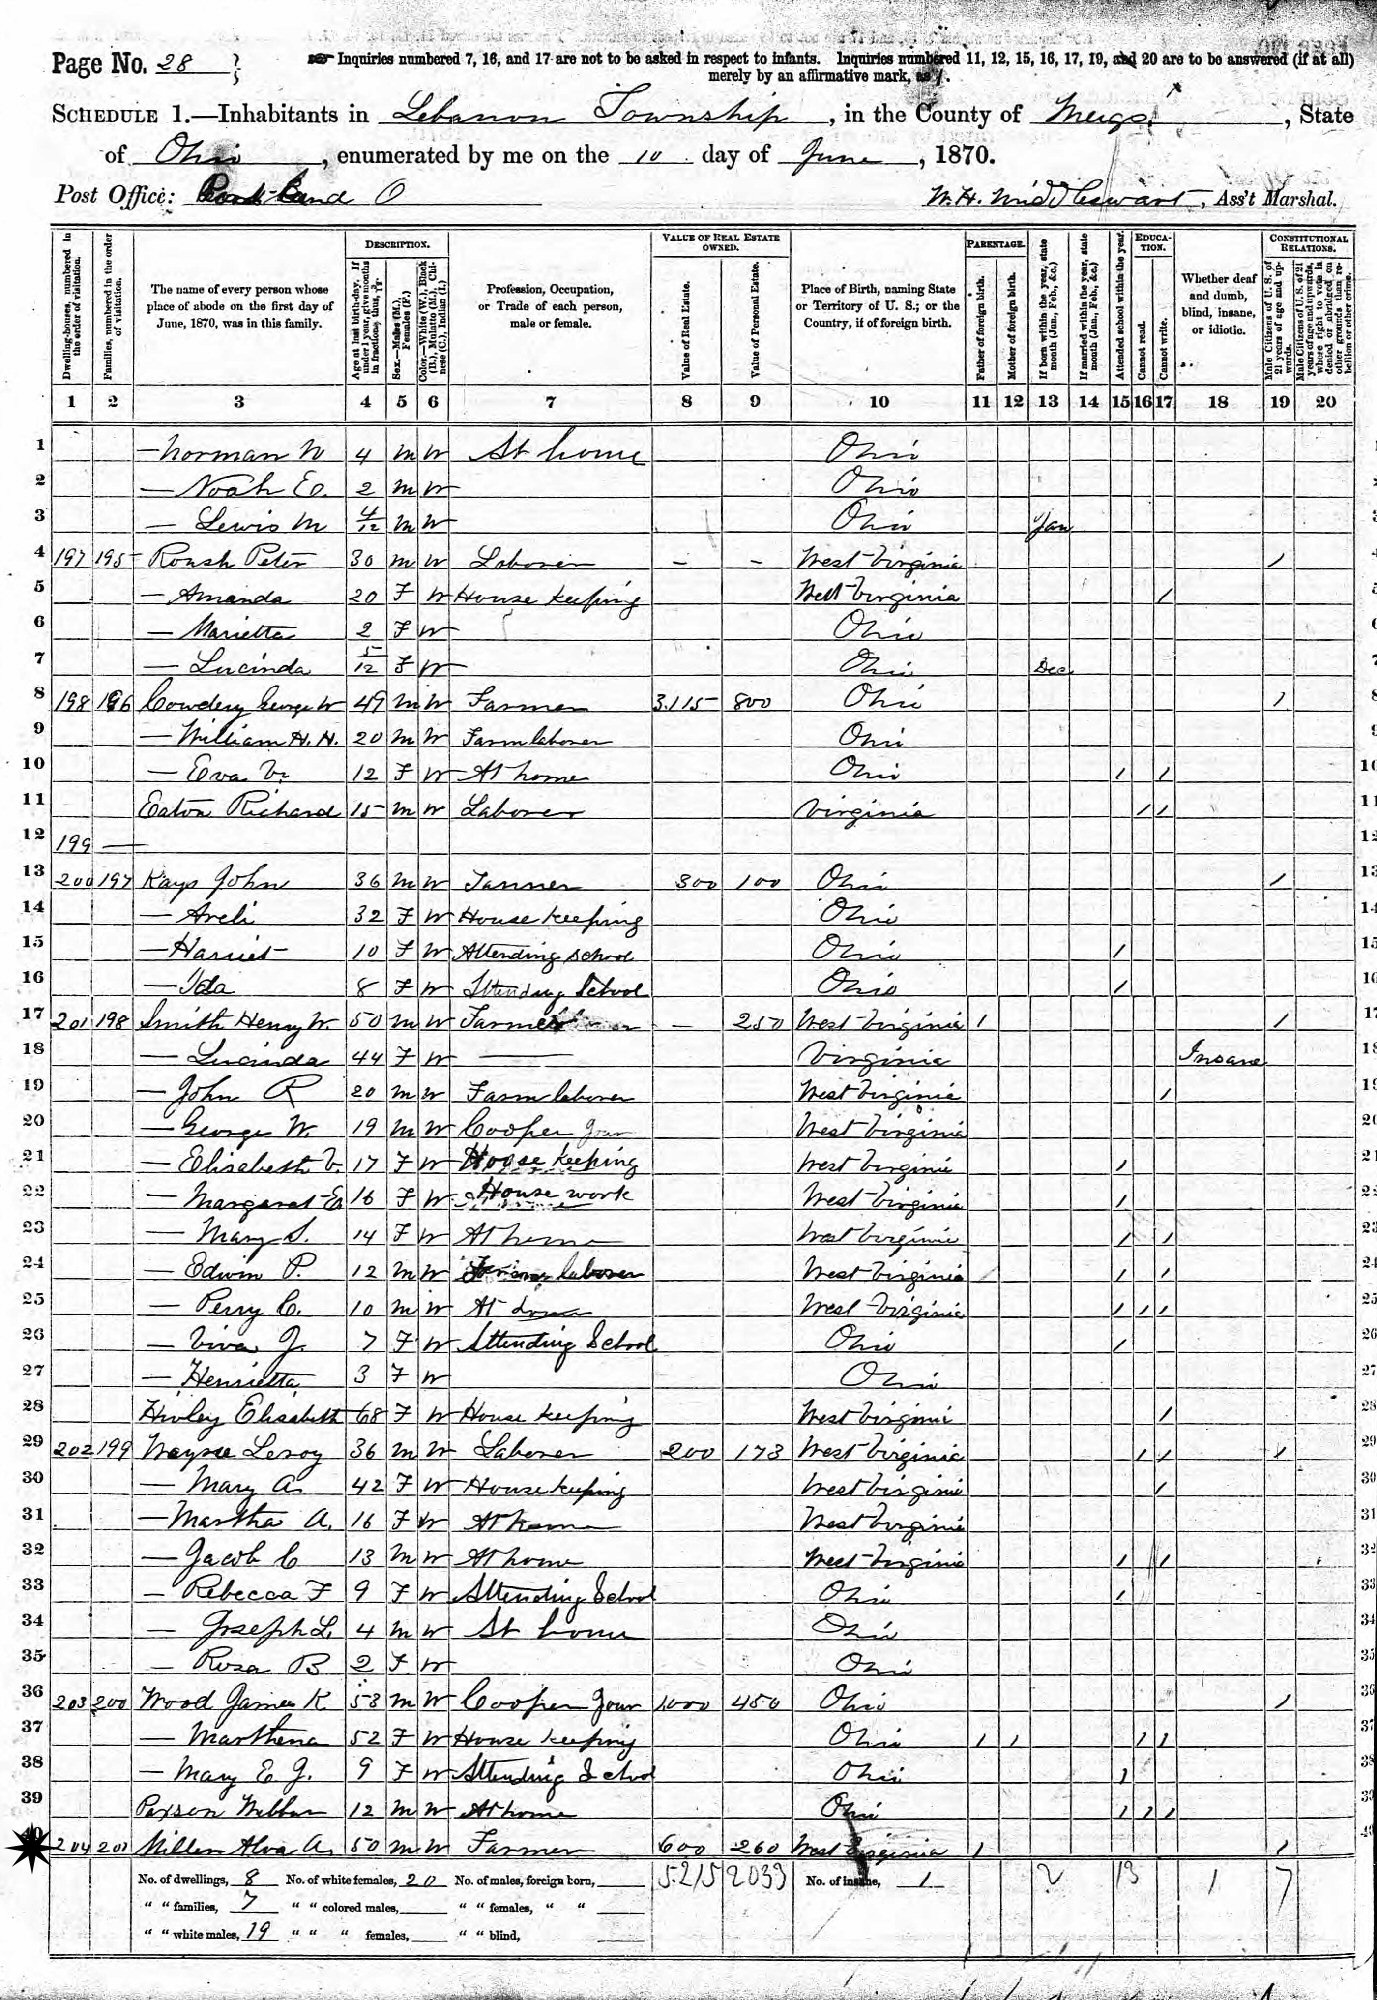 Page No. 28
Inquiries numbered 7, 16, and 17 are not to be asked in respect to infants. Inquiries numbered 11, 12, 15, 16, 17, 19, and 20 are to be answered (if at all)
merely by an affirmative mark, as /.
SCHEDULE 1.—Inhabitants in Lebanon Township, in the County of Meigs, State
of Ohio, enumerated by me on the 10 day of June, 1870.
Post Office: Portland O W. H. Middleswart, Ass't Marshal.
Dwelling-houses, numbered in the order of visitation.
Families, numbered in the order of visitation.
The name of every person whose place of abode on the first day of June, 1870, was in this family.
DESCRIPTION.
Age at last birth-day. If under 1 year, give months in fractions, thus, 3/12.
Sex.—Males (M.), Females (F.)
Color.—White (W.), Black (B.), Mulatto (M.), Chinese (C.), Indian (I.)
Profession, Occupation, or Trade of each person, male or female.
VALUE OF REAL ESTATE OWNED.
Value of Real Estate.
Value of Personal Estate.
Place of Birth, naming State or Territory of U. S.; or the Country, if of foreign birth.
PARENTAGE.
Father of foreign birth.
Mother of foreign birth.
If born within the year, state month (Jan., Feb., &c.)
If married within the year, state month (Jan., Feb., &c.)
Attended school within the year.
EDUCATION.
Cannot read.
Cannot write.
Whether deaf and dumb, blind, insane, or idiotic.
CONSTITUTIONAL RELATIONS.
Male Citizens of U. S. of 21 years of age and upwards.
Male Citizens of U. S. of 21 years of age and upwards, whose right to vote is denied or abridged on other grounds than rebellion or other crime.
1 2 3 4 5 6 7 8 9 10 11 12 13 14 15 16 17 18 19 20
1 — Norman W 4 M W At home Ohio
2 — Noah E. 2 M W Ohio
3 — Lewis M 4/12 M W Ohio Jan
4 197 195 Roush Peter 30 M W Laborer — — West Virginia /
5 — Amanda 20 F W House keeping West Virginia /
6 — Marietta 2 F W Ohio
7 — Lucinda 5/12 F W Ohio Dec
8 198 196 Cowdery George W 49 M W Farmer 3.115 800 Ohio /
9 — William H. H. 20 M W Farm laborer Ohio
10 — Eva V. 12 F W At home Ohio / /
11 Eaton Richard 15 M W Laborer Virginia / /
12 199 —
13 200 197 Kays John 36 M W Tanner 300 100 Ohio /
14 — Areli 32 F W House keeping Ohio
15 — Harriet 10 F W Attending school Ohio /
16 — Ida 8 F W Attending School Ohio /
17 201 198 Smith Henry W. 50 M W Farmer — 250 West Virginia / /
18 — Lucinda 44 F W — Virginia Insane
19 — John R 20 M W Farm laborer West Virginia /
20 — George W. 19 M W Cooper Jour West Virginia
21 — Elisabeth V. 17 F W House keeping West Virginia /
22 — Margaret E 16 F W House work West Virginia /
23 — Mary S. 14 F W At home West Virginia / /
24 — Edwin P. 12 M W Farm laborer West Virginia / /
25 — Perry C. 10 M W At home West Virginia / / /
26 — Viva J. 7 F W Attending School Ohio /
27 — Henrietta 3 F W Ohio
28 Hivley Elisabeth 68 F W House keeping West Virginia /
29 202 199 Wayne Leroy 36 M W Laborer 200 173 West Virginia / / /
30 — Mary A. 42 F W House keeping West Virginia /
31 — Martha A. 16 F W At home West Virginia
32 — Jacob C 13 M W At home West Virginia / /
33 — Rebecca F 9 F W Attending School Ohio /
34 — Joseph L. 4 M W At home Ohio
35 — Rosa B 2 F W Ohio
36 203 200 Wood James K 53 M W Cooper Jour 1,000 450 Ohio /
37 — Marthena 52 F W House keeping Ohio / / / /
38 — Mary E J. 9 F W Attending School Ohio /
39 Paxson Wilbur 12 M W At home Ohio / / /
40 204 201 Miller Alva A. 50 M W Farmer 600 260 West Virginia / /
No. of dwellings, 8 No. of white females, 20 No. of males, foreign born, 5215 2033 No. of insane, 1 2 13 1 7
" " families, 7 " " colored males, " " females, " "
" " white males, 19 " " " females, " " blind,